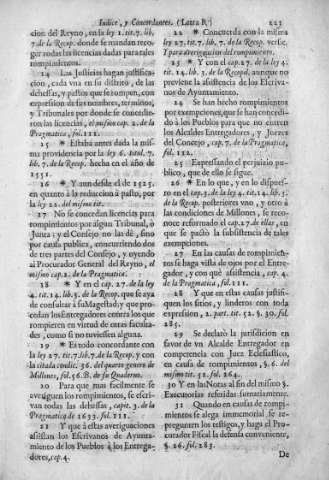 Indice, y Concordantes. (Letra R) 223
cion del Reyno, en la ley 1. tit. 7. lib.
7. de la Recop. donde se mandan reco-
ger todas las licencias dadas para tales
rompimientos.
14 Las Justicias hagan justifica-
cion, cada vna en su distrito, de las
dehessas, y pastos que se rompen, con
expression de sus nombres, terminos,
y Tribunales por donde se concedie-
ron las licencias, el mismo cap. 2. de la
Pragmatica, fol. 111.
15 Estaba antes dada la mis-
ma providencia por la ley 6. totul. 7.
lib. 7. de la Recop. hecha en el año de
1551.
16 * Y aun desde el de 1525.
en quanto à la reduccion à pasto, por
la ley 22. del mismo tit.
17 No se concedan licencias para
rompimientos por algun Tribunal, ò
Junta; y el Consejo no las dè, sino
por causa publica, concurriendo dos
de tres partes del Consejo, y oyendo
al Procurador General del Reyno, el
mismo cap. 2. de la Pragmatica.
18 * Y en el cap. 27. de la ley
4. tit. 14. lib. 3. de la Recop. que se aya
de consultar à su Magestad, y que pro-
cedan los Entregadores contra los que
rompieren en virtud de otras faculta-
des, como si no tuviessen alguna.
19 * Es todo concordante con
la ley 27. tit. 7. lib. 7. de la Recop. y con
la citada condic. 36. del quarto genero de
Millones, fol. 56. B. de su Quaderno.
20 Para que mas facilmente se
averiguen los rompimientos, se escri-
van todas las dehessas, capit. 3. de la
Pragmatica de 1633. fol. 111.
21 Y que à estas averiguaciones
assistan los Escrivanos de Ayunta-
miento de los Pueblos à los Entrega-
dores, cap. 4.
22 * Concuerda con la misma
ley 27. tit. 7. lib. 7. de la Recop. versic.
Y para averiguacion del rompimiento.
23 * Y con el cap. 27. de la ley 4.
tit. 14. lib. 3. de la Recopil. aunque no
previene la assistencia de los Escriva-
nos de Ayuntamiento.
24 Se han hecho rompimientos
por exempciones, que se han concedi-
do à los Pueblos para que no entren
los Alcaldes Entregadores, y Juezes
del Concejo, cap. 7. de la Pragmatica,
fol. 112.
25 Expressando el perjuizio pu-
blico, que de ello se sigue.
26 * En lo que, y en lo dispues-
to en el cap. 3. de la ley 4. tit. 14. lib. 3.
de la Recop. posteriores vno, y otro à
las condiciones de Millones, se reco-
noce reformado el cap. 27. de ellas, en
que se pactò la subsistencia de tales
exempciones.
27 En las causas de rompimien-
tos se haga vista de ojos por el Entre-
gador, y con què assistencia, cap. 4.
de la Pragmatica, fol. 111.
28 Y que en estas causas justifi-
quen los sitios, y linderos con toda
expression, 2. part. tit. 52. §. 30. fol.
285.
29 Se declarò la jurisdiccion en
favor de vn Alcalde Entregador en
competencia con Juez Eclesiastico,
en causa de rompimientos, §. 6. del
mismo tit. 52. fol. 264.
30 Y en las Notas al fin del mismo §.
Executorias referidas sumariamente.
31 Quando en causas de rompi-
mientos se alega immemorial se re-
pregunten los testigos, y haga el Pro-
curador Fiscal la defensa conveniente,
§. 26. fol. 283.
De